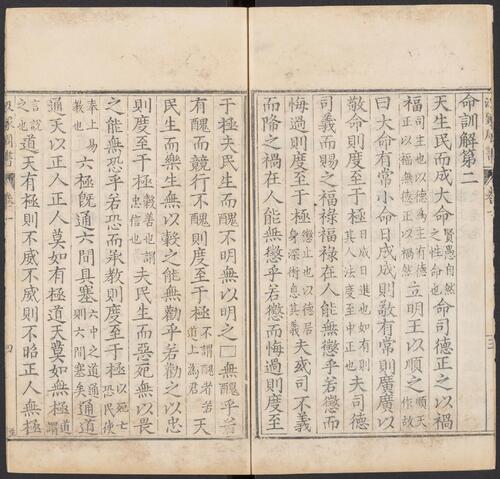 命訓解第二
天生民而成大命賢愚自然之性命也命司德正之以禍
福司主也以德為主有德正以福無德正以禍然立明王以順之順天作故
曰大命有常小命日成成則敬有常則廣廣以
敬命則度至于極日成日進也如有則其人法度至中正也夫司德
司義而賜之福祿福祿在人能無懲乎若懲而
悔過則度至于極懲止也以德居身深術息其義夫或司不義
而降之禍在人能無懲乎若懲而悔過則度至
于極夫民生而醜不明無以明之□無醜乎若
有醜而競行不醜則度至于極不謂醜者若道上為君天
民生而樂生無以穀之能無勸乎若勸之以忠
則度至于極穀善也謂忠信也夫民生而惡死無以畏
之能無恐乎若恐而承教則度至于極以死亡恐民使
奉上易教也六極既通六間具塞六中之道通則六間塞矣通道
通天以正人正人莫如有極道天莫如無極道謂
言說之也道天有極則不威不威則不昭正人無極
汲冢周書
卷一
四